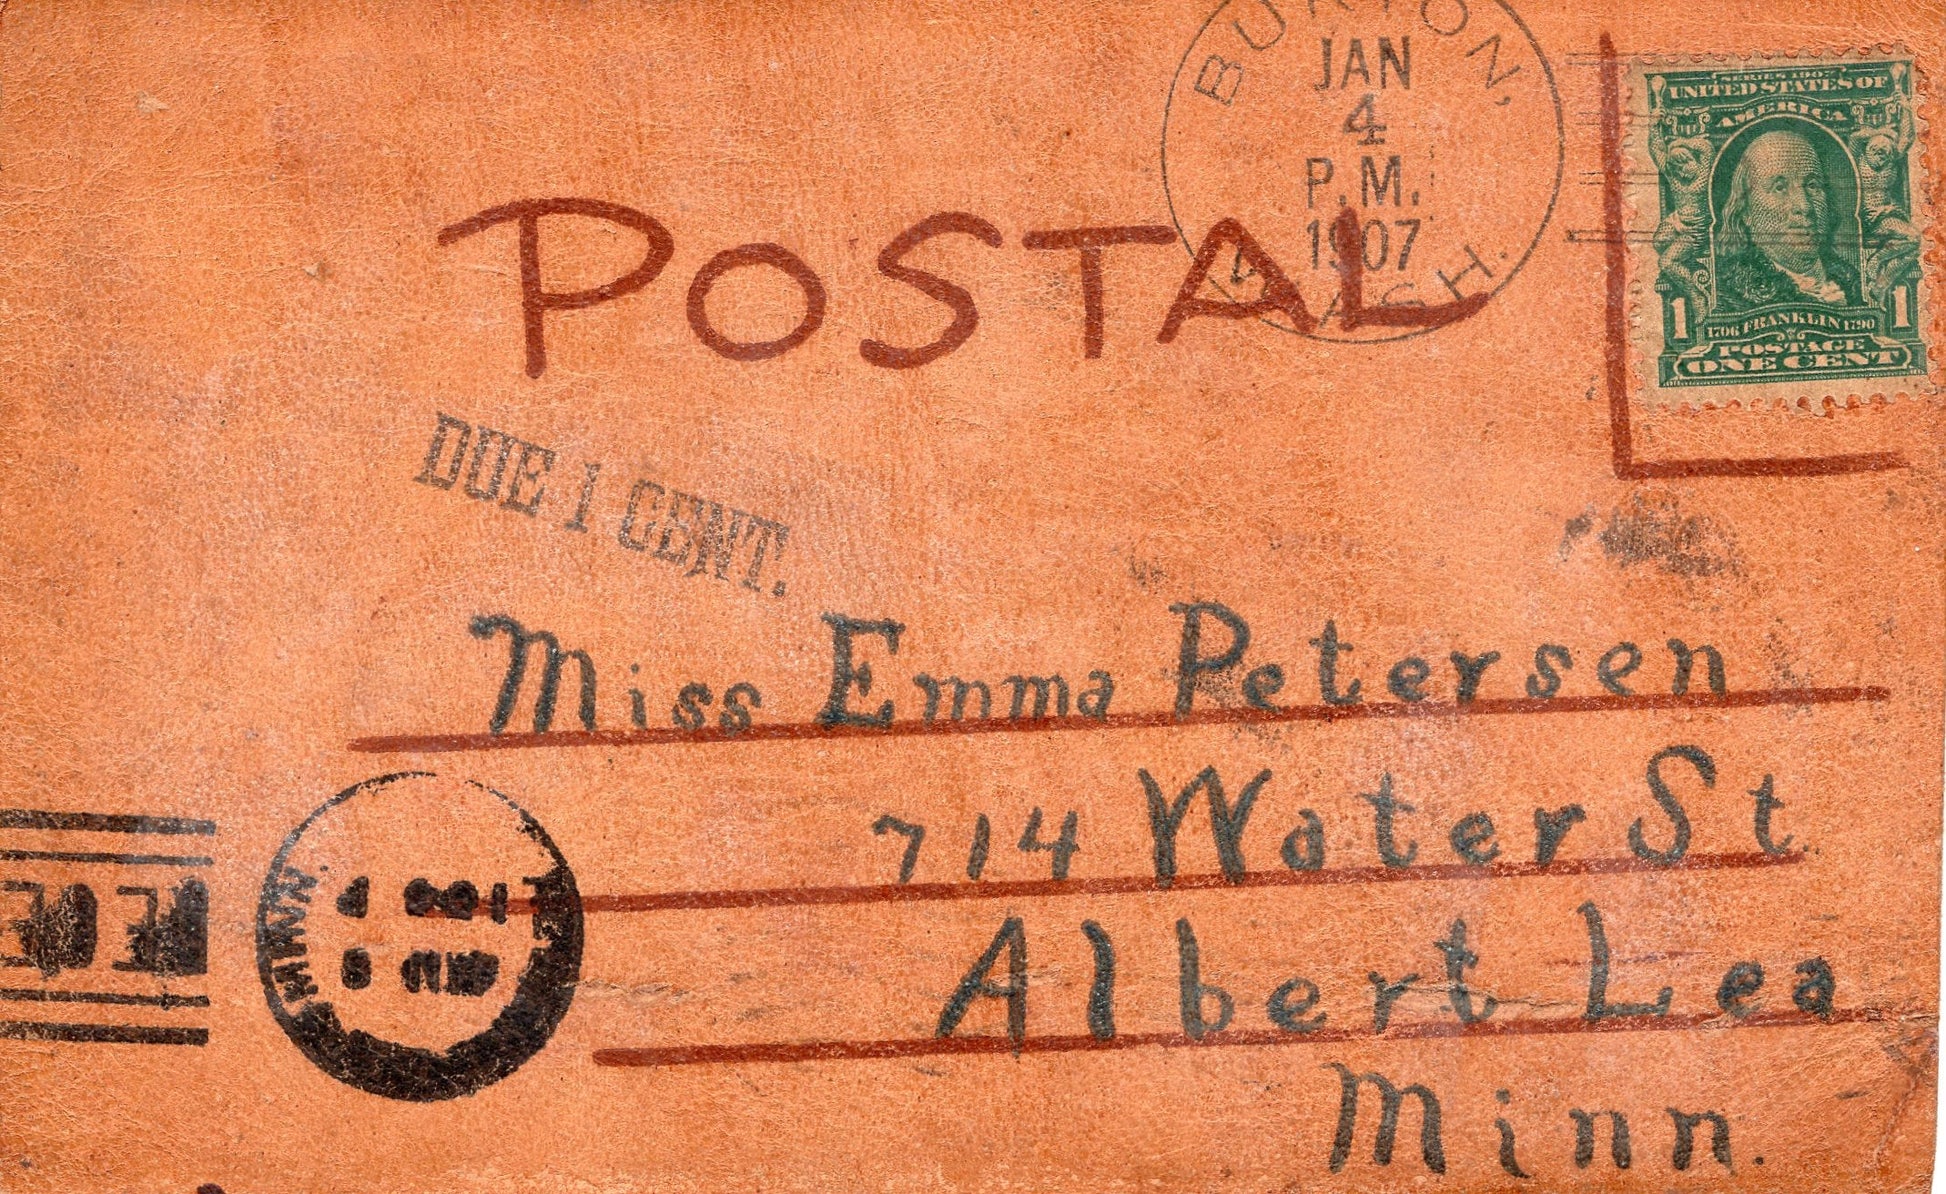 BURTON,
JAN
4
P.M.
1907
WASH.
SERIES 1902
UNITED STATES OF
AMERICA
1 1
1706 FRANKLIN 1790
POSTAGE
ONE CENT
POSTAL
DUE 1 CENT.
Miss Emma Petersen
714 Water St.
Albert Lea
Minn.
MINN.